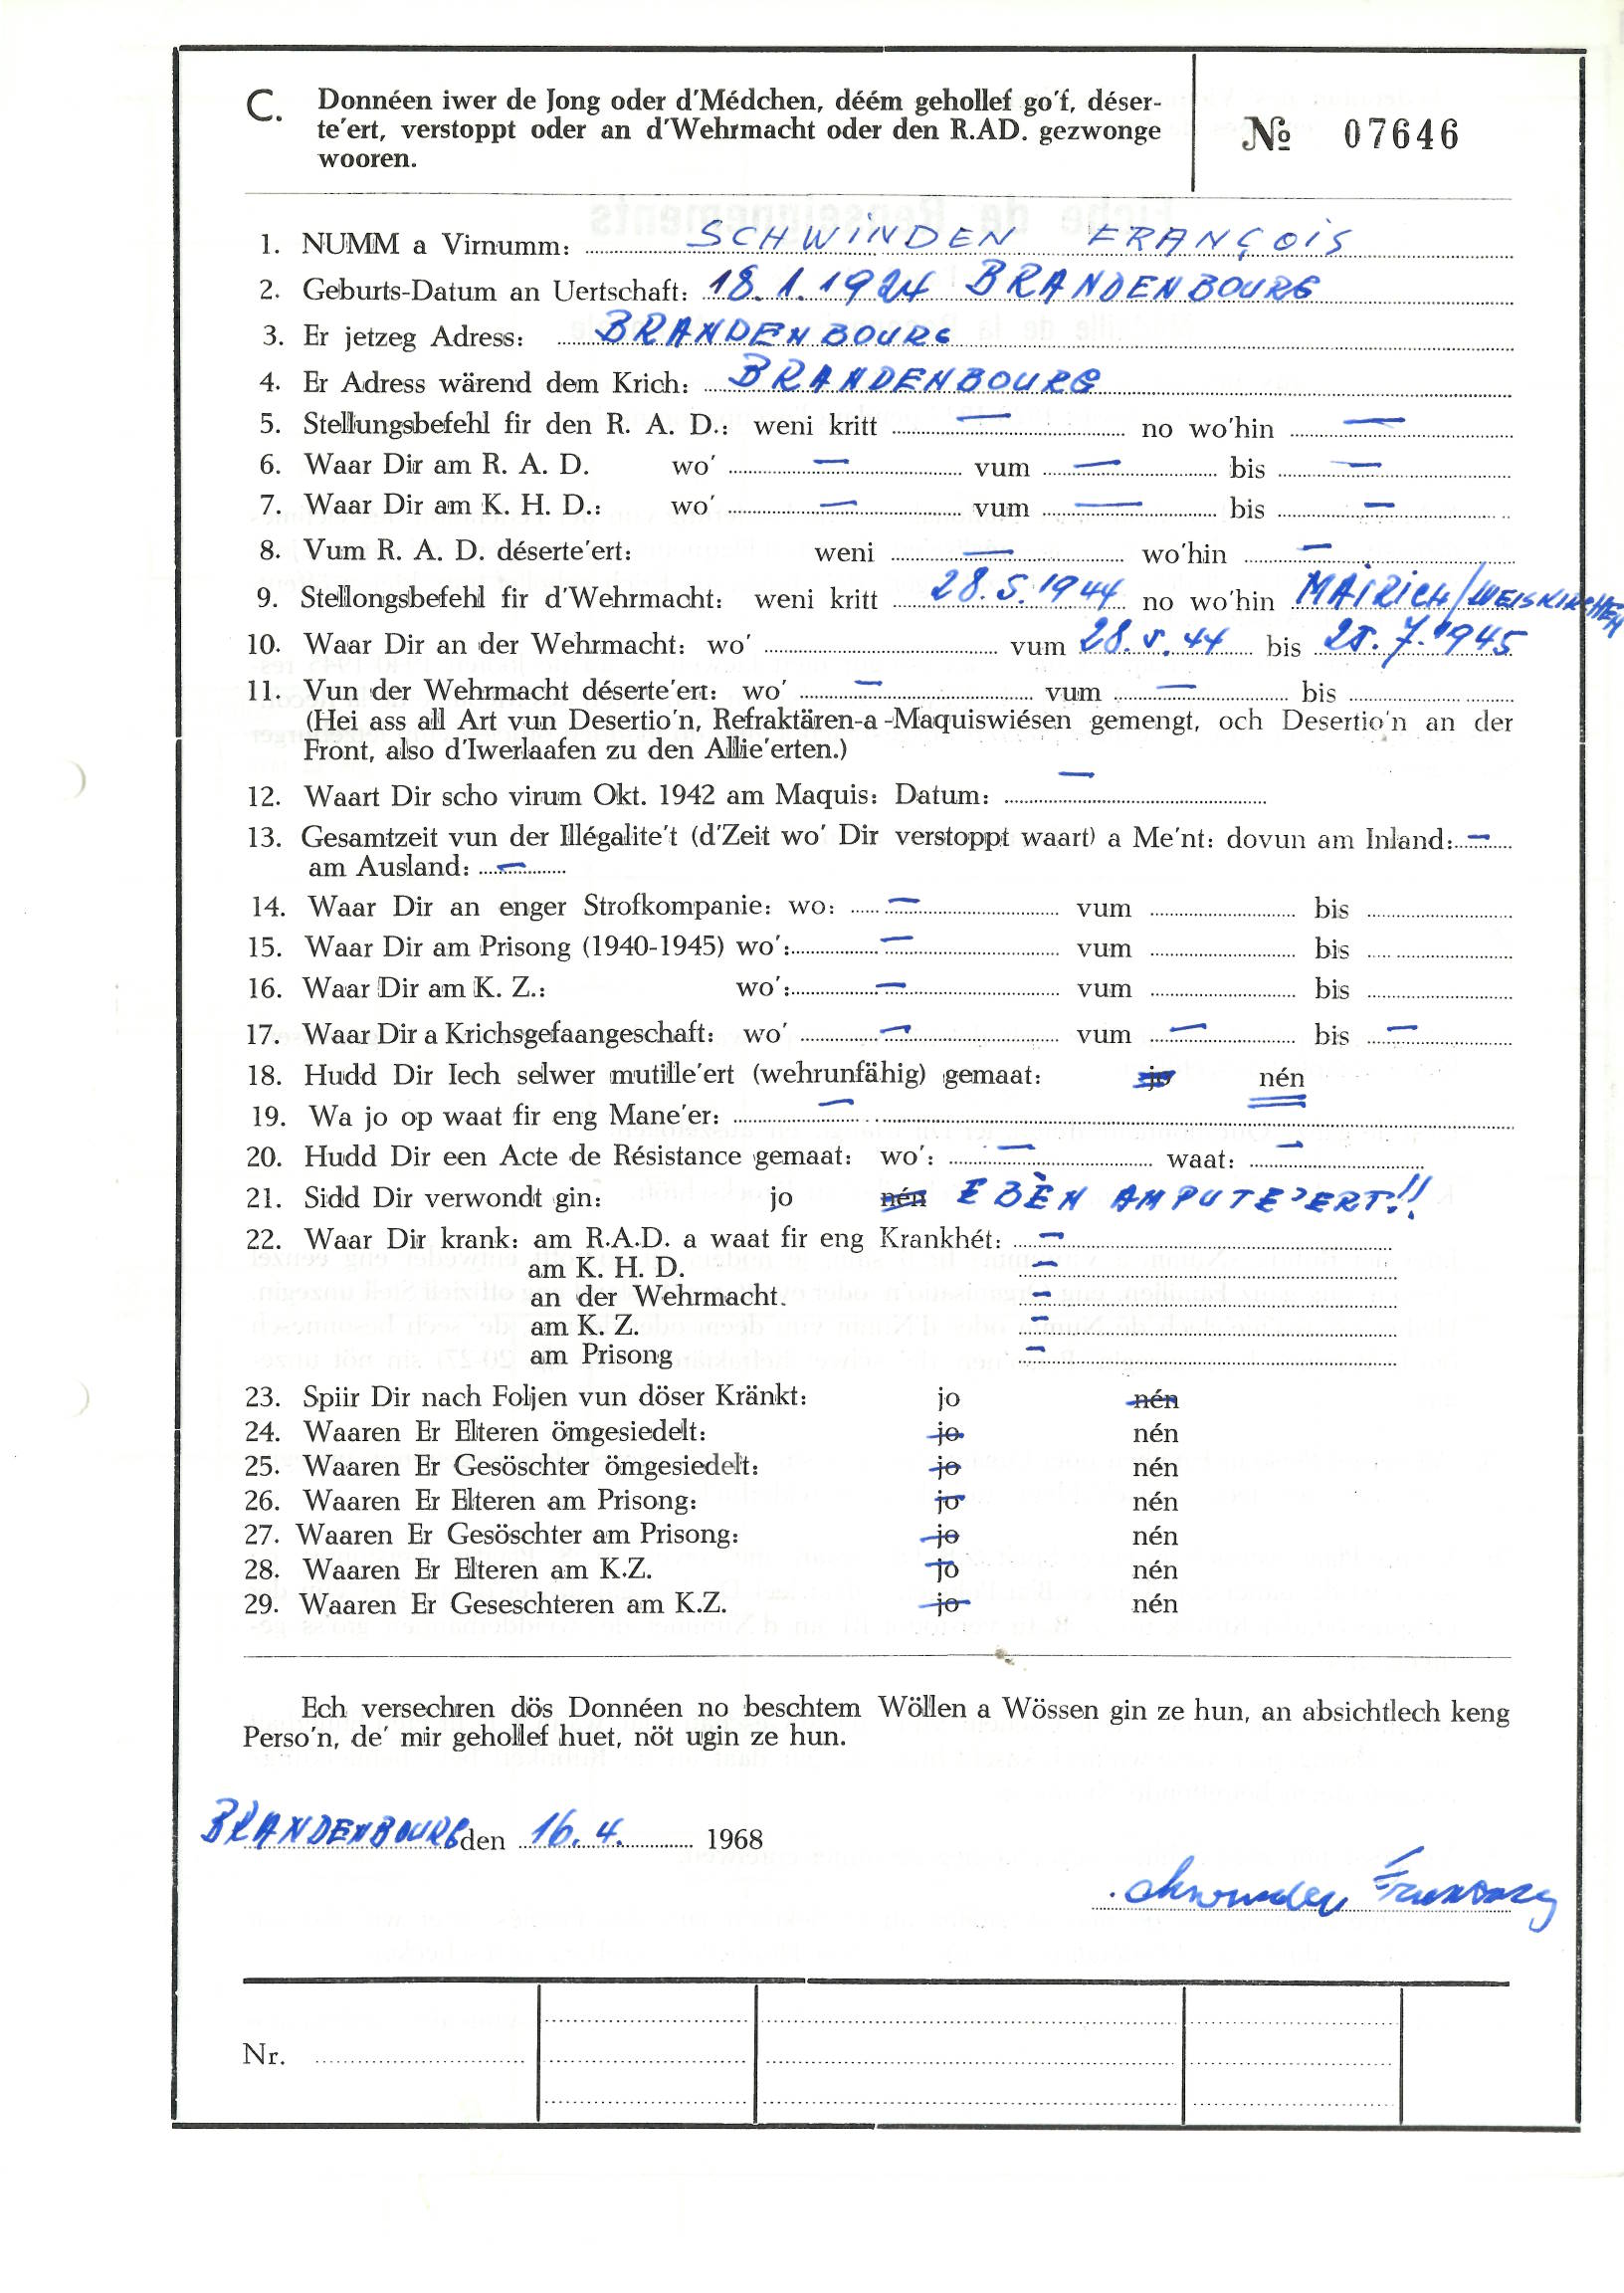 C. Donnéen iwer de Jong oder d'Médchen, déém gehollef go'f, déser-
te'ert, verstoppt oder an d'Wehrmacht oder den R.AD. gezwonge
wooren.
№ 07646
1. NUMM a Virnumm: SCHWINDEN FRANÇOIS
2. Geburts-Datum an Uertschaft: 18.1.1924 BRANDENBOURG
3. Er jetzeg Adress: BRANDENBOURG
4. Er Adress wärend dem Krich: BRANDENBOURG
5. Stellungsbefehl fir den R. A. D.: weni kritt — no wo'hin —
6. Waar Dir am R. A. D. wo' — vum — bis —
7. Waar Dir am K. H. D.: wo' — vum — bis —
8. Vum R. A. D. déserte'ert: weni — wo'hin —
9. Stellongsbefehl fir d'Wehrmacht: weni kritt 28.5.1944 no wo'hin MAIRICH/WEISKIRCHEN
10. Waar Dir an der Wehrmacht: wo' vum 28.5.44 bis 25.7.1945
11. Vun der Wehrmacht déserte'ert: wo' — vum — bis
(Hei ass all Art vun Desertio'n, Refraktären-a-Maquiswiésen gemengt, och Desertio'n an der
Front, also d'Iwerlaafen zu den Allie'erten.)
12. Waart Dir scho virum Okt. 1942 am Maquis: Datum: —
13. Gesamtzeit vun der Illégalite't (d'Zeit wo' Dir verstoppt waart) a Me'nt: dovun am Inland: —
am Ausland: —
14. Waar Dir an enger Strofkompanie: wo: — vum bis
15. Waar Dir am Prisong (1940-1945) wo': — vum bis
16. Waar Dir am K. Z.: wo': — vum bis
17. Waar Dir a Krichsgefaangeschaft: wo' — vum — bis —
18. Hudd Dir Iech selwer mutille'ert (wehrunfähig) gemaat: jo nén
19. Wa jo op waat fir eng Mane'er: —
20. Hudd Dir een Acte de Résistance gemaat: wo': — waat: —
21. Sidd Dir verwondt gin: jo nén E BÈN AMPUTE'ERT!!
22. Waar Dir krank: am R.A.D. a waat fir eng Krankhét: —
am K. H. D. —
an der Wehrmacht. —
am K. Z. —
am Prisong —
23. Spiir Dir nach Foljen vun döser Kränkt: jo nén
24. Waaren Er Elteren ömgesiedelt: jo nén
25. Waaren Er Gesöschter ömgesiedelt: jo nén
26. Waaren Er Elteren am Prisong: jo nén
27. Waaren Er Gesöschter am Prisong: jo nén
28. Waaren Er Elteren am K.Z. jo nén
29. Waaren Er Geseschteren am K.Z. jo nén
Ech versechren dös Donnéen no beschtem Wöllen a Wössen gin ze hun, an absichtlech keng
Perso'n, de' mir gehollef huet, nöt ugin ze hun.
BRANDENBOURG den 16.4. 1968
Nr.